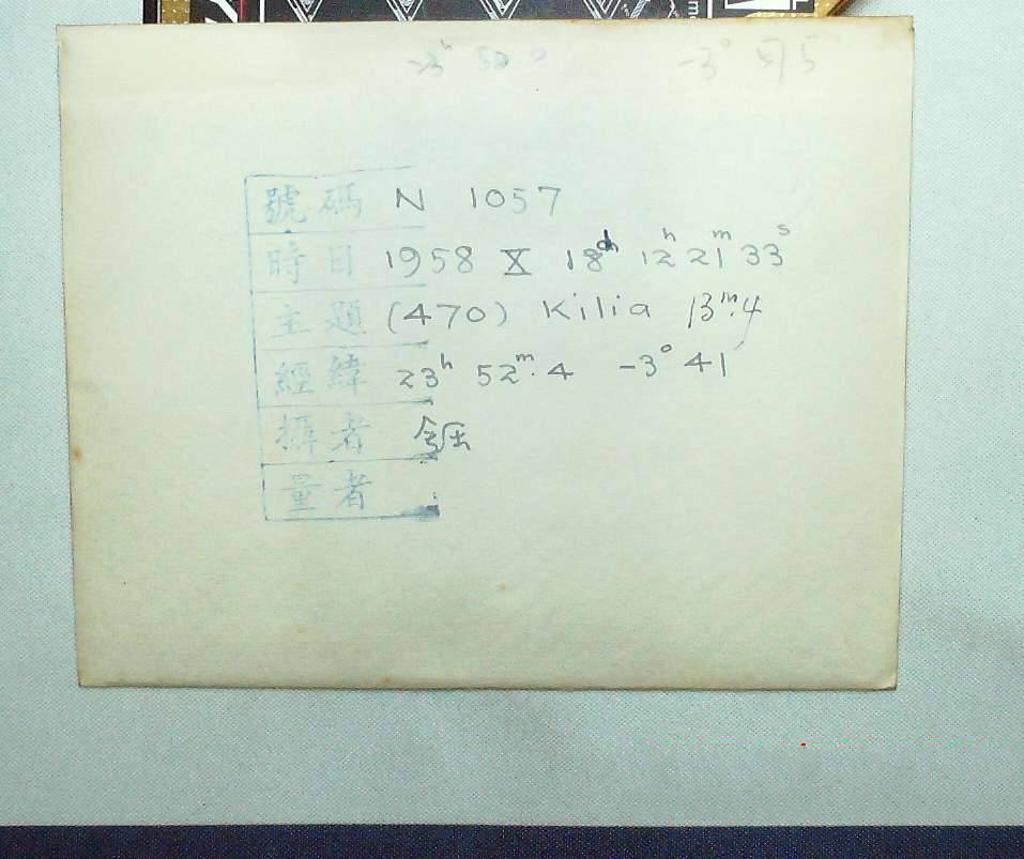 號碼 N 1057
時日 1958 X 18d 12h 21m 33s
主題 (470) Kilia 13m.4
經緯 23h 52m.4 -3° 41
攝者
量者